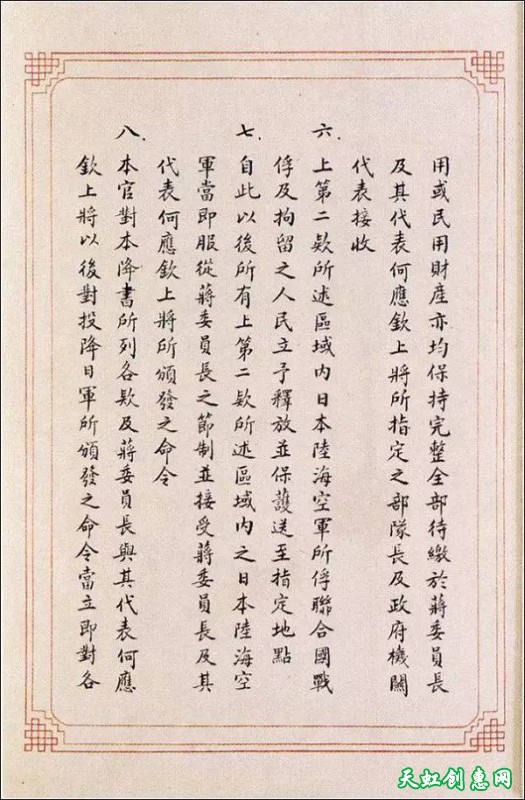 用或民用財產亦均保持完整全部待繳於蔣委員長
及其代表何應欽上將所指定之部隊長及政府機關
代表接收
六、上第二欵所述區域內日本陸海空軍所俘聯合國戰
俘及拘留之人民立予釋放並保護送至指定地點
七、自此以後所有上第二欵所述區域內之日本陸海空
軍當即服從蔣委員長之節制並接受蔣委員長及其
代表何應欽上將所頒發之命令
八、本官對本降書所列各欵及蔣委員長與其代表何應
欽上將以後對投降日軍所頒發之命令當立即對各
天虹创惠网